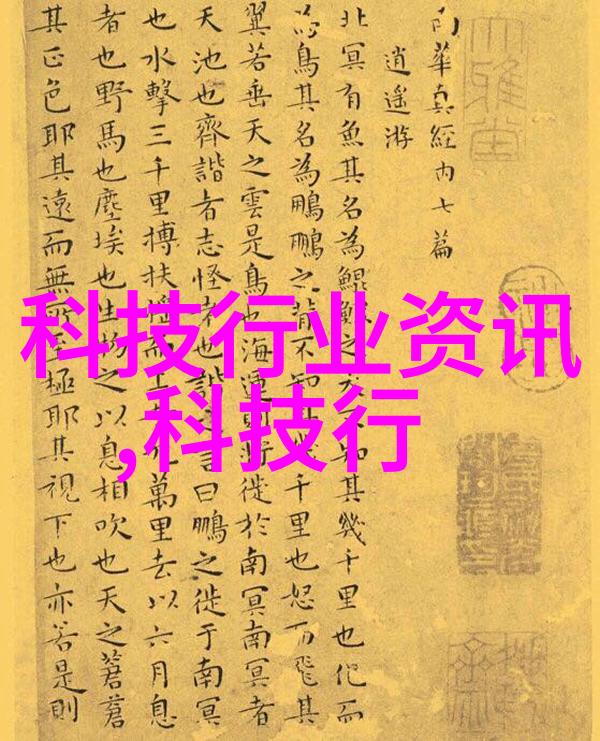 南華真經內七篇
逍遙游
北冥有魚其名為鯤鯤之大不知其幾千里也化而
為鳥其名為鵬鵬之背不知其幾千里也怒而飛其
翼若垂天之雲是鳥也海運則將徙於南冥南冥者
天池也齊諧者志怪者也諧之言曰鵬之徙于南冥
也水擊三千里搏扶搖而上者九萬里去以六月息
者也野馬也塵埃也生物之以息相吹也天之蒼蒼
其正色耶其遠而無所至極耶其視下也亦若是則
大雅堂
科技行业资讯
,科技行